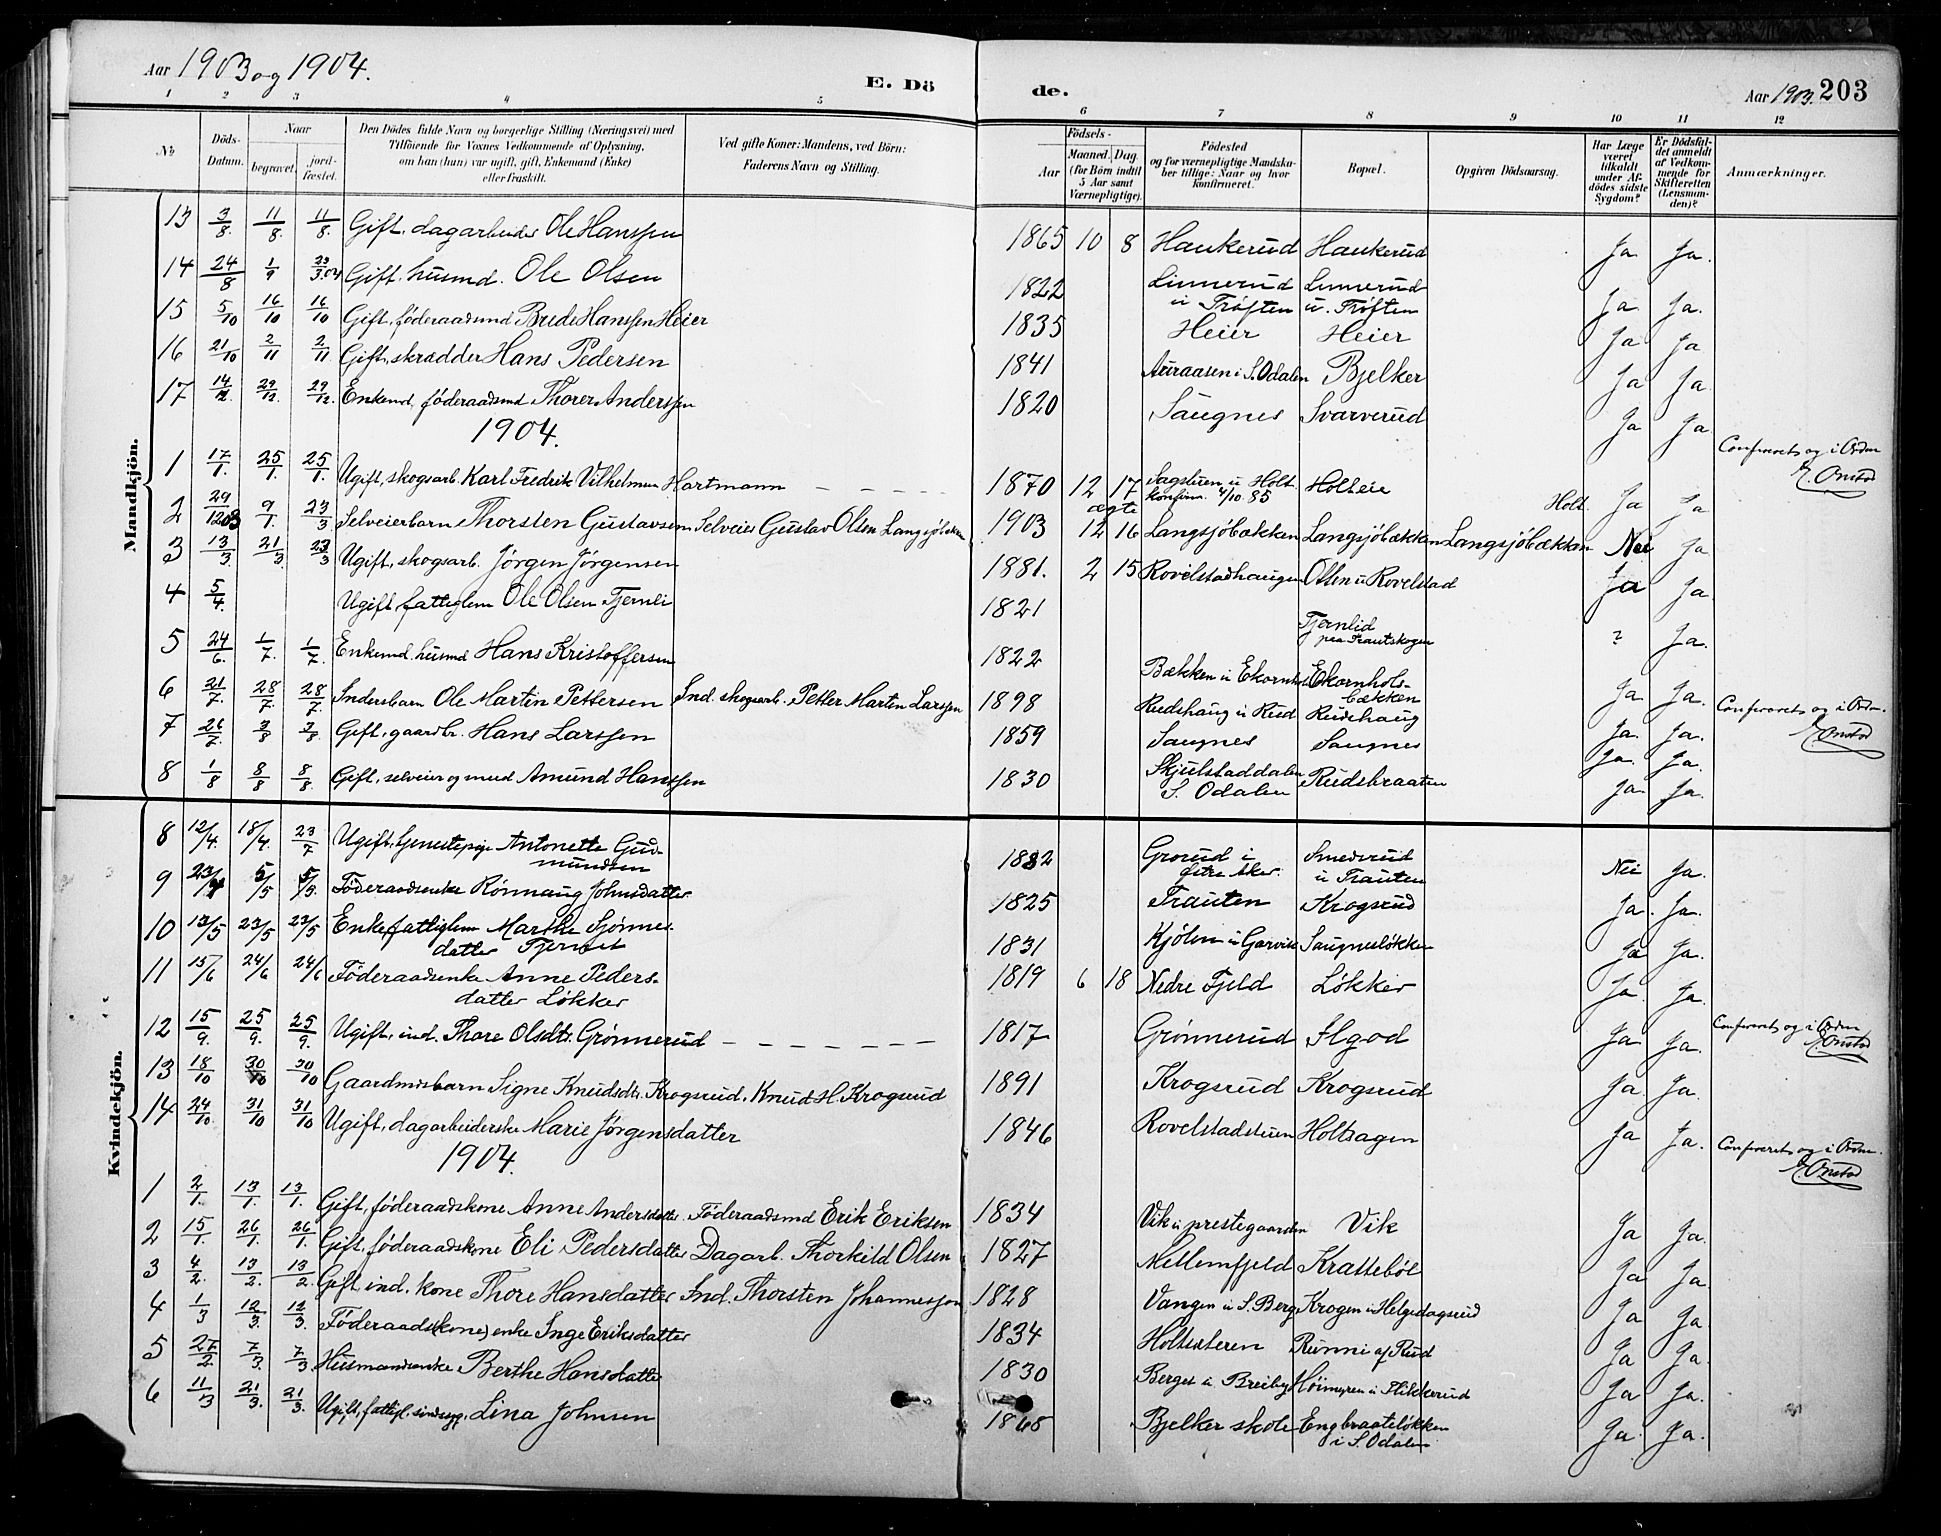 Aar 1903 og 1904.
E. Dö de.
Aar 1903. 203
1 2 3 4 5 6 7 8 9 10 11 12
No
Döds-Datum.
Naar
begravet.
jord-fæstet.
Den Dödes fulde Navn og borgerlige Stilling (Næringsvei) med
Tilföiende for Voxnes Vedkommende af Oplysning,
om han (hun) var ugift, gift, Enkemand (Enke)
eller fraskilt.
Ved gifte Koner: Mandens, ved Börn:
Faderens Navn og Stilling.
Födsels-
Aar
Maaned. Dag.
(for Börn indtil
5 Aar samt
Værnepligtige).
Födested
og for værnepligtige Mandska-
ber tillige: Naar og hvor
konfirmeret.
Bopæl.
Opgiven Dödsaarsag.
Har Læge
været
tilkaldt
under Af-
dödes sidste
Sygdom?
Er Dödsfal-
det anmeldt
af Vedkom-
mende for
Skifteretten
(Lensman-
den)?
Anmærkninger.
Mandkjön.
13 3/8. 11/8. 11/8. Gift. dagarbeider Ole Hanssen 1865 10 8 Haukerud Haukerud Ja Ja.
14 24/8 1/9 23/3.04 Gift. husmd. Ole Olsen 1822 Linnerud u Trøften Linnerud u. Trøften Ja. Ja.
15 5/10 16/10 16/10 Gift, föderaadsmd Brede Hanssen Heier 1835 Heier Heier Ja Ja
16 21/10 2/11 2/11 Gift, skrædder Hans Pedersen 1841 Auraasen i S. Odalen Bjelker Ja Ja.
17 14/12. 29/12. 29/12. Enkemd, föderaadsmd Thorer Anderssen 1820 Saugnes Svarverud Ja Ja.
1904.
Confereret og i Orden
Onstad
1 17/1. 25/1. 25/1. Ugift, skogsarb. Karl Fredrik Vilhelmsen Hartmann 1870 12 17 Sagstuen u Holt. konfirm. 4/10. 85 Holteie Holt. Ja Ja
2 29/1203 9/1. 23/3 Selveierbarn Thorsten Gustavsen Selveier Gustav Olsen Langsjöbækken 1903 ægte 12 16 Langsjöbækken Langsjöbækken Langsjöbækken Nei Ja
3 13/3. 21/3 23/3 Ugift, skogsarb. Jörgen Jörgensen 1881. 2 15 Rovelstadhaugen Olsen u Rovelstad Ja Ja.
4 5/4. Ugift fattiglem Ole Olsen Tjernli 1821 Tjernlid paa Trautskogen ? Ja.
5 24/6. 1/7. 1/7. Enkemd. husmd Hans Kristoffersen 1822 Bækken u Ekornhol Ekornhols-bækken Ja Ja.
6 21/7. 28/7. 28/7. Inderstbarn Ole Martin Pettersen Ind. skogsarb. Petter Martin Larssen 1898 Rudshaug u Rud Rudshaug Ja. Ja.
Confereret og i Orden.
Onstad
7 26/7. 3/8 3/8. Gift, gaardbr. Hans Larssen 1859 Saugnes Saugnes Ja. Ja.
8 1/8 8/8 8/8. Gift, selveier og smed Amund Hanssen 1830 Skjulstaddalen S. Odalen Rudsbraaten Ja. Ja.
Kvindekjön.
8 12/4. 18/4. 23/7 Ugift, tjenestepige Antonette Gud-mundsen 1882 Grorud i Østre Aker. Smedsrud u Trauten Nei Ja.
9 23/4 5/5 5/5. Föderaadsenke Rönnaug Johnsdatter 1825 Trauten Krogsrud Ja. Ja.
10 13/5 23/5 23/5 Enke, fattiglem Marthe datter 1831 Kjölen u Garvik Saugnesløkken Ja Ja.
11 15/6 24/6 24/6 Föderaadsenke Anne Peders-datter Løkker 1819 6 18 Nedre Fjeld Løkker Ja. Ja.
12 15/9. 25/9. 25/9. Ugift, ind. Thore Olsdtr. Grönnerud 1817 Grönnerud Ilgod Ja Ja.
Confereret og i Orden
Onstad
13 18/10 30/10 30/10 Gaardmdsbarn Signe Knudsdtr. Krogsrud. Knud H. Krogsrud 1891 Krogsrud Krogsrud Ja. Ja.
14 24/10. 31/10 31/10 Ugift, dagarbeiderske Marie Jörgensdatter 1846 Rovelstadstuen Holtsagen Ja Ja.
1904.
Confereret og i Orden.
Onstad
1 2/1. 13/1. 13/1. Gift, föderaadskone Anne Andersdatter. Föderaadsmd Erik Eriksen 1834 Vik u prestegaarden Vik Ja Ja.
2 15/1. 26/1. 26/1. Gift, föderaadskone Eli Pedersdatter Dagarb. Thorkild Olsen 1827 Mellemfjeld Krattebøl Ja Ja
3 4/2. 13/2. 13/2. Gift, ind. kone Thore Hansdatter Ind. Thorsten Johannessen 1828 Vangen u S. Berg Krogen u Helgedagsrud Ja Ja.
4 1/3 12/3. 12/3. Föderaads(kone) enke Inge Eriksdatter 1834 Holtseteren Runni af Rud Ja Ja.
5 27/2. 7/3. 7/3 Husmandsenke Berthe Hansdatter 1830 Berget u Breiby Høimyren u Flikkerud Ja Ja.
6 11/3 21/3. 21/3. Ugift, fattigl. sindssyg. Lina Johnsen 1868 Bjelker skole Engbraateløkken i S. Odalen Ja. Ja.